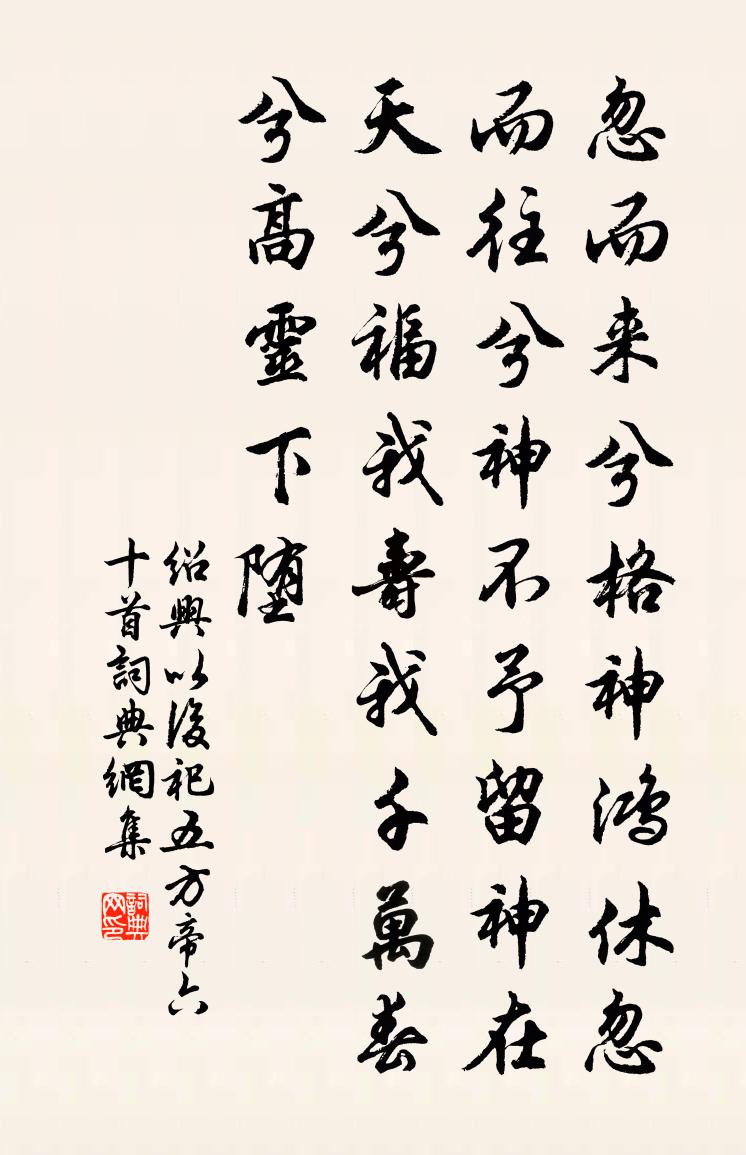 忽而来兮格神鸿休忽
而往兮神不予留神在
天兮福我壽我千萬春
兮高靈下堕
绍興以後祀五方帝六
十首詞典網集
詞典网印